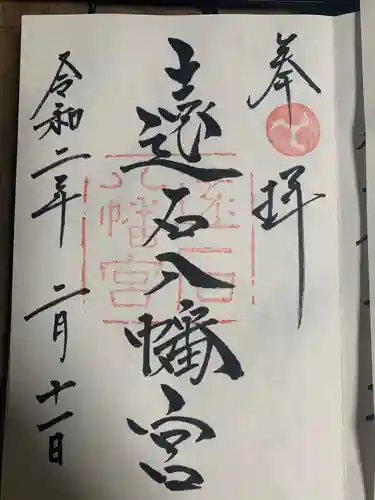 奉拝
遠石八幡宮
令和二年 二月十一日
遠石
八幡宮